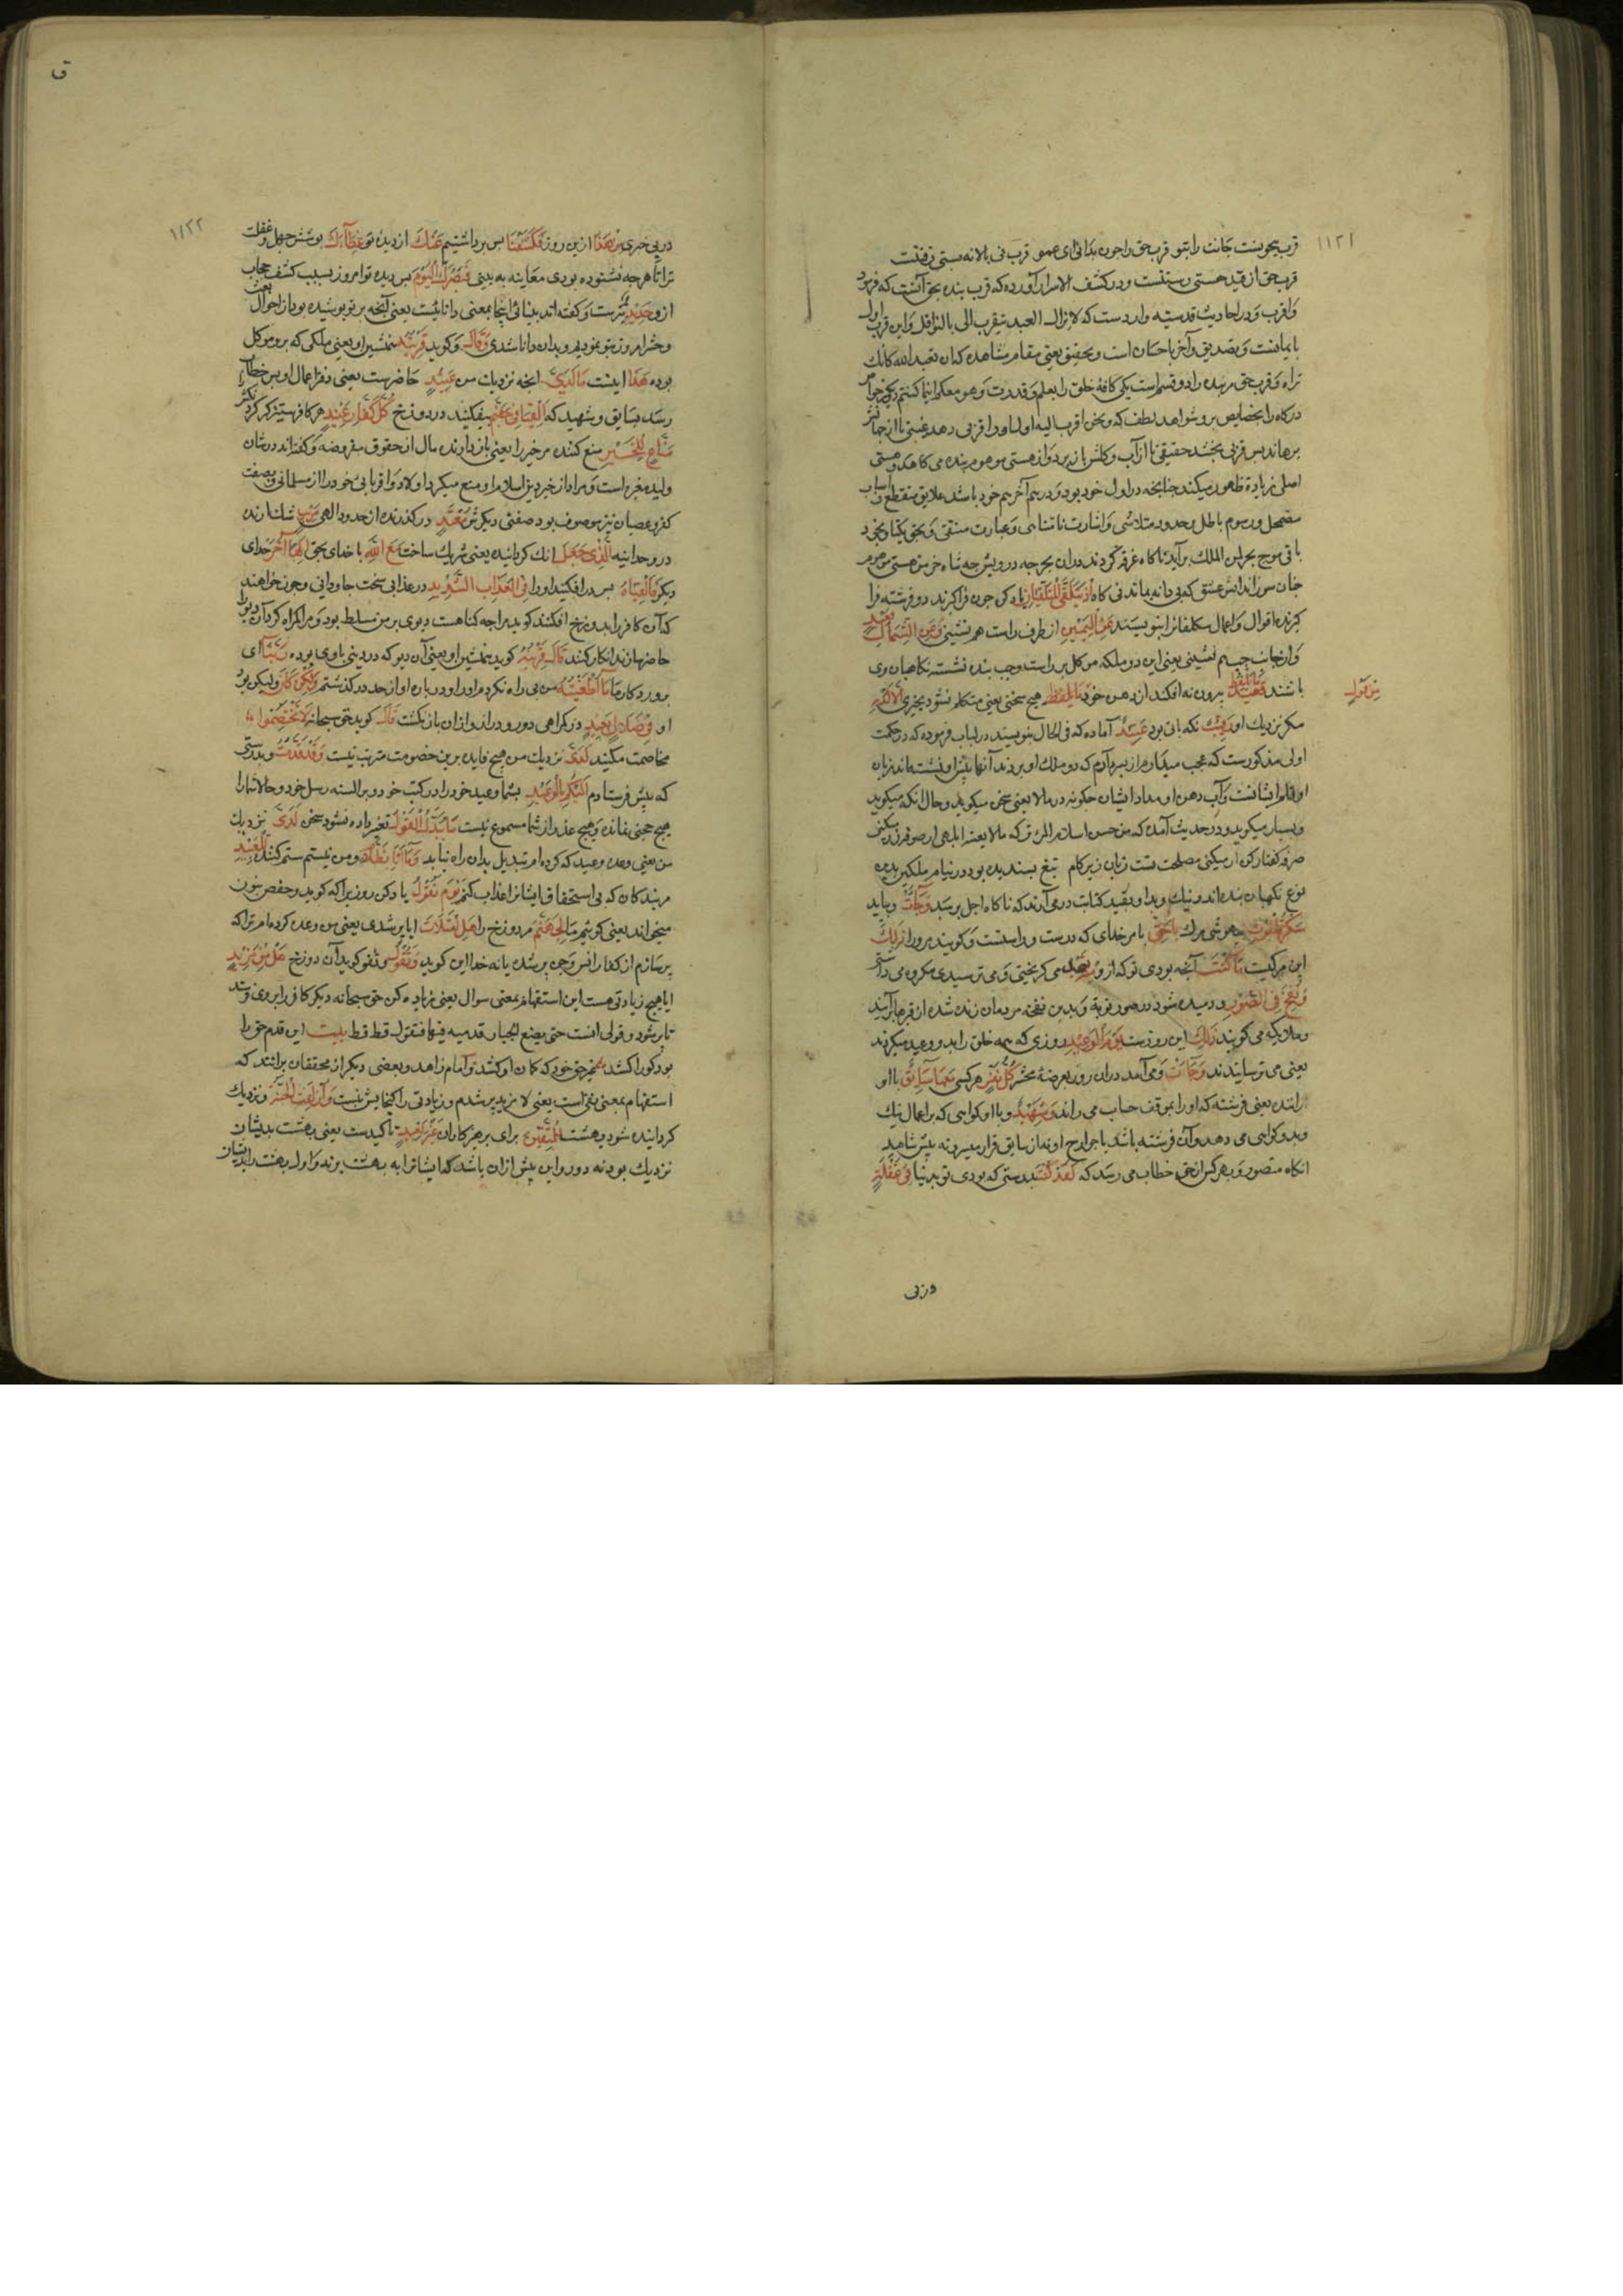 ١١٢١
قرب بیچونست جانت را بتو قرب حق را چون بدانی ای عمو قرب نی بالا نه بستی رفتنست
قرب حق از قید هستی رستنست و در کشف الاسرار آورده که قرب بنده بحق آنست که فرمود
واقرب و در احادیث قدسیه واردست که لا یزال العبد یتقرب الی بالنوافل و این قرب اول
بایمانست و تصدیق و آخر باحسان است و تحقیق یعنی مقام مشاهده که ان تعبد الله کانک
تراه و قرب حق مر بنده را دو قسم است یکی کافه خلق را بعلم و قدرت و هو معکم اینما کنتم دیگر خواص
درکاه را بخصایص بر و شواهد لطف که و نحن اقرب الیه اول او را قربی دهد غیبی تا از جهانش
برهاند پس قربی بخشد حقیقی تا از آب و کلش باز برد و از هستی موهوم بنده می کاهد و هستی
اصلی زیادة ظهور میکند چنانچه در اول خود بود و در هم آخر هم خود باشد علایق منقطع و اسباب
مضمحل و رسوم باطل و حدود متلاشی و اشارت متناهی و عبارت منتفی و بحق یکتا
باقی موج بحر لمن الملک برآید ناکاه غرقه کردند در آن بحر چه درویش چه شاه خرمن هستی موهوم
چنان سوزاند آتش عشق که نی دانه بماند نی کاه اذ یتلقی المتلقیان یاد کن چون فراکیرند دو فرشته فرا
کیرنده اقوال و اعمال مکلفانرا بنویسند عن الیمین از طرف راست هم نشینی و عن الشمال قعید
و از جانب چپ هم نشینی یعنی این دو ملکه موکل بر راست و چپ بنده نشسته نکاهبان وی
باشند ما یلفظ بیرون نه افکند از دهن خود من قول هیچ سخنی یعنی متکلم نشود بچیزی الا لدیه
مکر نزدیک او رقیب نکه بانی بود عتید آماده که فی الحال بنویسند در لباب فرموده که در حکمت
اولی مذکورست که عجب میدارم از پسر آدم که دو ملک او بر دند آنها نیش او نشسته اند زبان
او قلم ایشانست و آب دهن او مداد ایشان چکونه در ما لا یعنی سخن میکوید و حال آنکه میکوید
و بسیار میکوید و در حدیث آمده که من حسن اسلام المرء ترکه ما لا یعنیه
صرفه کفتار کن ار میکنی مصلحت تست زبان زیر کام تیغ پسندیده بود در نیام ملکین بدین
نوع نکهبان بنده اند و نیک و بد او بقید کتابت درمی آرند که ناکاه اجل برسد و جاءت و بیاید
سکرة الموت بیهوشی مرک بالحق بامر خدای که درست و راستست و کویند مرورا ذلک
این مرکیست ما کنت آنچه بودی تو که از و منه تحید می کریختی و می ترسیدی و مکروه می داشتی
و نفخ فی الصور و دمیده شود در صور نوبه و بدین نفخه مردمان زنده شده از قبرها برآیند
و ملایکه می کویند ذلک این روزست یوم الوعید روزی که همه خلق را بدو وعید میکردند
یعنی می ترسانیدند و جاءت و می آمد در آن روز بعرضه محشر کل نفس هر کسی معها سائق با او
راننده یعنی فرشته که او را بموقف حساب می راند و شهید و با او کواهی که بر اعمال نیک
و بد و کواهی می دهد و آن فرشته باشد یا جوارح او نه از سایق فرار میسر و نه پیش شاهد
انکاه متصور و بهر کس از حق خطاب می رسد که لقد کنت بدرستی که بودی تو بدنیا فی غفلة
من قول
در بی
ق
١١٢٢
در بی خبری من هذا از این روز فکشفنا پس برداشتیم عنک از دیده تو غطاءک پوشش جهل و غفلت
ترا تا هرچه نشنوده بودی معاینه به بینی فبصرک الیوم پس دیده تو امروز بسبب کشف حجاب
از و حدید تیزست و کفته اند بینائی اینجا بمعنی دانائیست یعنی آنچه بر تو پوشیده بود از احوال بعث
و حشر امروز بتو نمودیم و بدان دانا شدی و قال و کوید قرینه همنشین او یعنی ملکی که برو موکل
بوده هذا اینست ما لدی انچه نزدیک من عتید حاضرست یعنی دفتر اعمال او پس خطاب
رسد بسایق و شهید که القیا فی جهنم بیفکنید در دوزخ کل کفار عنید هر کافر ستیزکر کردنکش
مناع للخیر منع کننده مر خیر را یعنی باز دارنده مال از حقوق مفروضه و کفته اند در شان
ولید مغیره است و مراد از خیر دین اسلام او منع میکرد اولاد و اقربائی خود را از مسلمانی و بصفت
کفر و عصیان نیز موصوف بود صفتی دیکرش معتد درکذرنده از حدود الهی مریب شک ارنده
در وحدانیه الذی جعل انک کردانیده یعنی شریک ساخت مع الله با خدای بحق الها آخر خدای
دیکر فالقیاه پس درافکنید او را فی العذاب الشدید در عذابی سخت جاودانی و چون خواهند
که آن کافر را بدوزخ افکنند کوید مرا چه کناهست دیوی بر من مسلط بود و مرا کمراه کرد آن دیو را
حاضر سازند انکار کند قال قرینه کوید همنشین او یعنی آن دیو که در دنیی باوی بوده ربنا ای
پروردکار ما ما اطغیته من بی راه نکردم او را و در باره او از حد در نکذشتم و لکن کان و لیکن بود
او فی ضلال بعید در کمراهی دور و دراز و از آن باز نکشت قال کوید حق سبحانه لا تختصموا
مخاصمت مکنید لدی نزدیک من هیچ فایده برین خصومت مترتب نیست و قد قدمت و بدرستی
که پیش فرستادم الیکم بالوعید بشما وعید خود را در کتب خود و بر السنه رسل خود و حالا شما را
هیچ حجتی نمانده و هیچ عذر از شما مسموع نیست ما یبدل القول تغیر داده نشود سخن لدی نزدیک
من یعنی وعده و وعید که کرده ام تبدیل بدان راه نیابد و ما انا بظلام و من نیستم ستم کننده للعبید
مر بندکان که بی استحقاق ایشانرا عذاب کنم یوم نقول یاد کن روزیرا که کوید و حفص بنون
میخواند یعنی کوئیم ما لجهنم مر دوزخ را هل امتلات ایا پر شدی یعنی من وعده کرده ام ترا که
پر سازم از کفار انس و جن پر شده یا نه خدا این کوید و تقول و کوید آن دوزخ هل من مزید
ایا هیچ زیادتی هست این استفهام بمعنی سوال یعنی زیاده کن حق سبحانه دیکر کافر را بروی فرستد
تا پر شود و قولی انست حتی یضع الجبار قدمیه فیها فتقول قط قط بیت این قدم حق را
بود کو را کشد غیر حق خود که کمان او کشد و امام زاهد و بعضی دیکر از محققان برانند که
استفهام بمعنی نفی است یعنی لا مزید پر شدم و زیادتی را کنجایش نیست و ازلفت الجنة و نزدیک
کردانیده شود بهشت للمتقین برای پرهیزکاران غیر بعید تاکیدست یعنی بهشت بدیشان
نزدیک بود نه دور و این پیش از آن باشد که ایشانرا به بهشت برند و اول بهشت را بدیشان